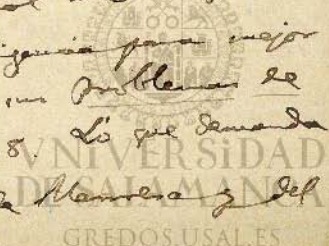 para mejor
sus problemas de
8. Lo que demanda
a Manresa y del
VNIVERSiDAD
DE SALAMANCA
GREDOS.USAL.ES